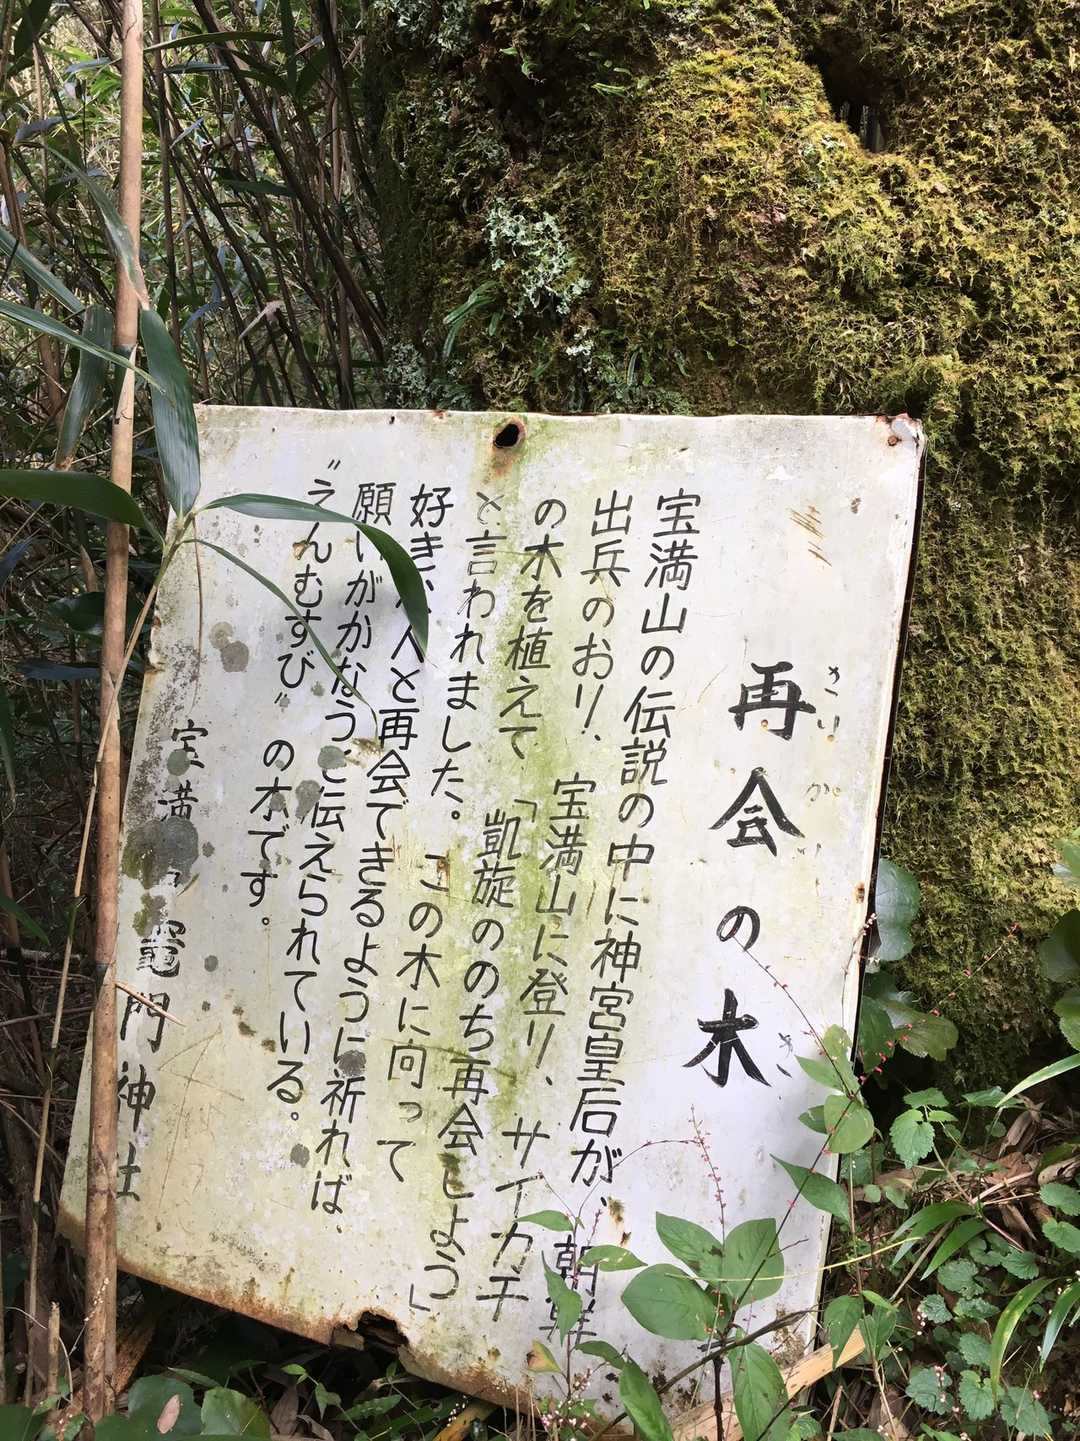 再会の木
さいかい き
宝満山の伝説の中に神宮皇后が、朝鮮
出兵のおり、宝満山に登り、サイカチ
の木を植えて「凱旋ののち再会しよう」
と言われました。この木に向って
好きな人と再会できるように祈れば、
願いがかなうと伝えられている。
〝えんむすび〟の木です。
宝満 竈門神社